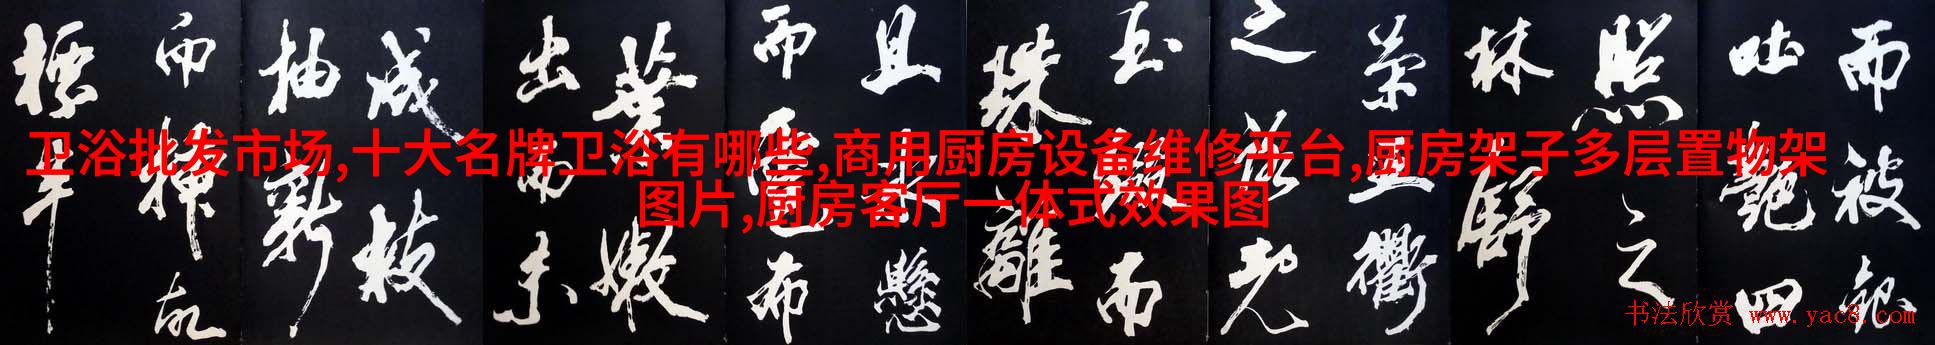 卫浴批发市场,十大名牌卫浴有哪些,商用厨房设备维修平台,厨房架子多层置物架
图片,厨房客厅一体式效果图
而被
吐艷四
照之
林舒
衢
之
玉綴而
珠離
且懸
而布
葉嫩
出而未
成枝
抽新
而
標
书法欣赏 www.yac8.com